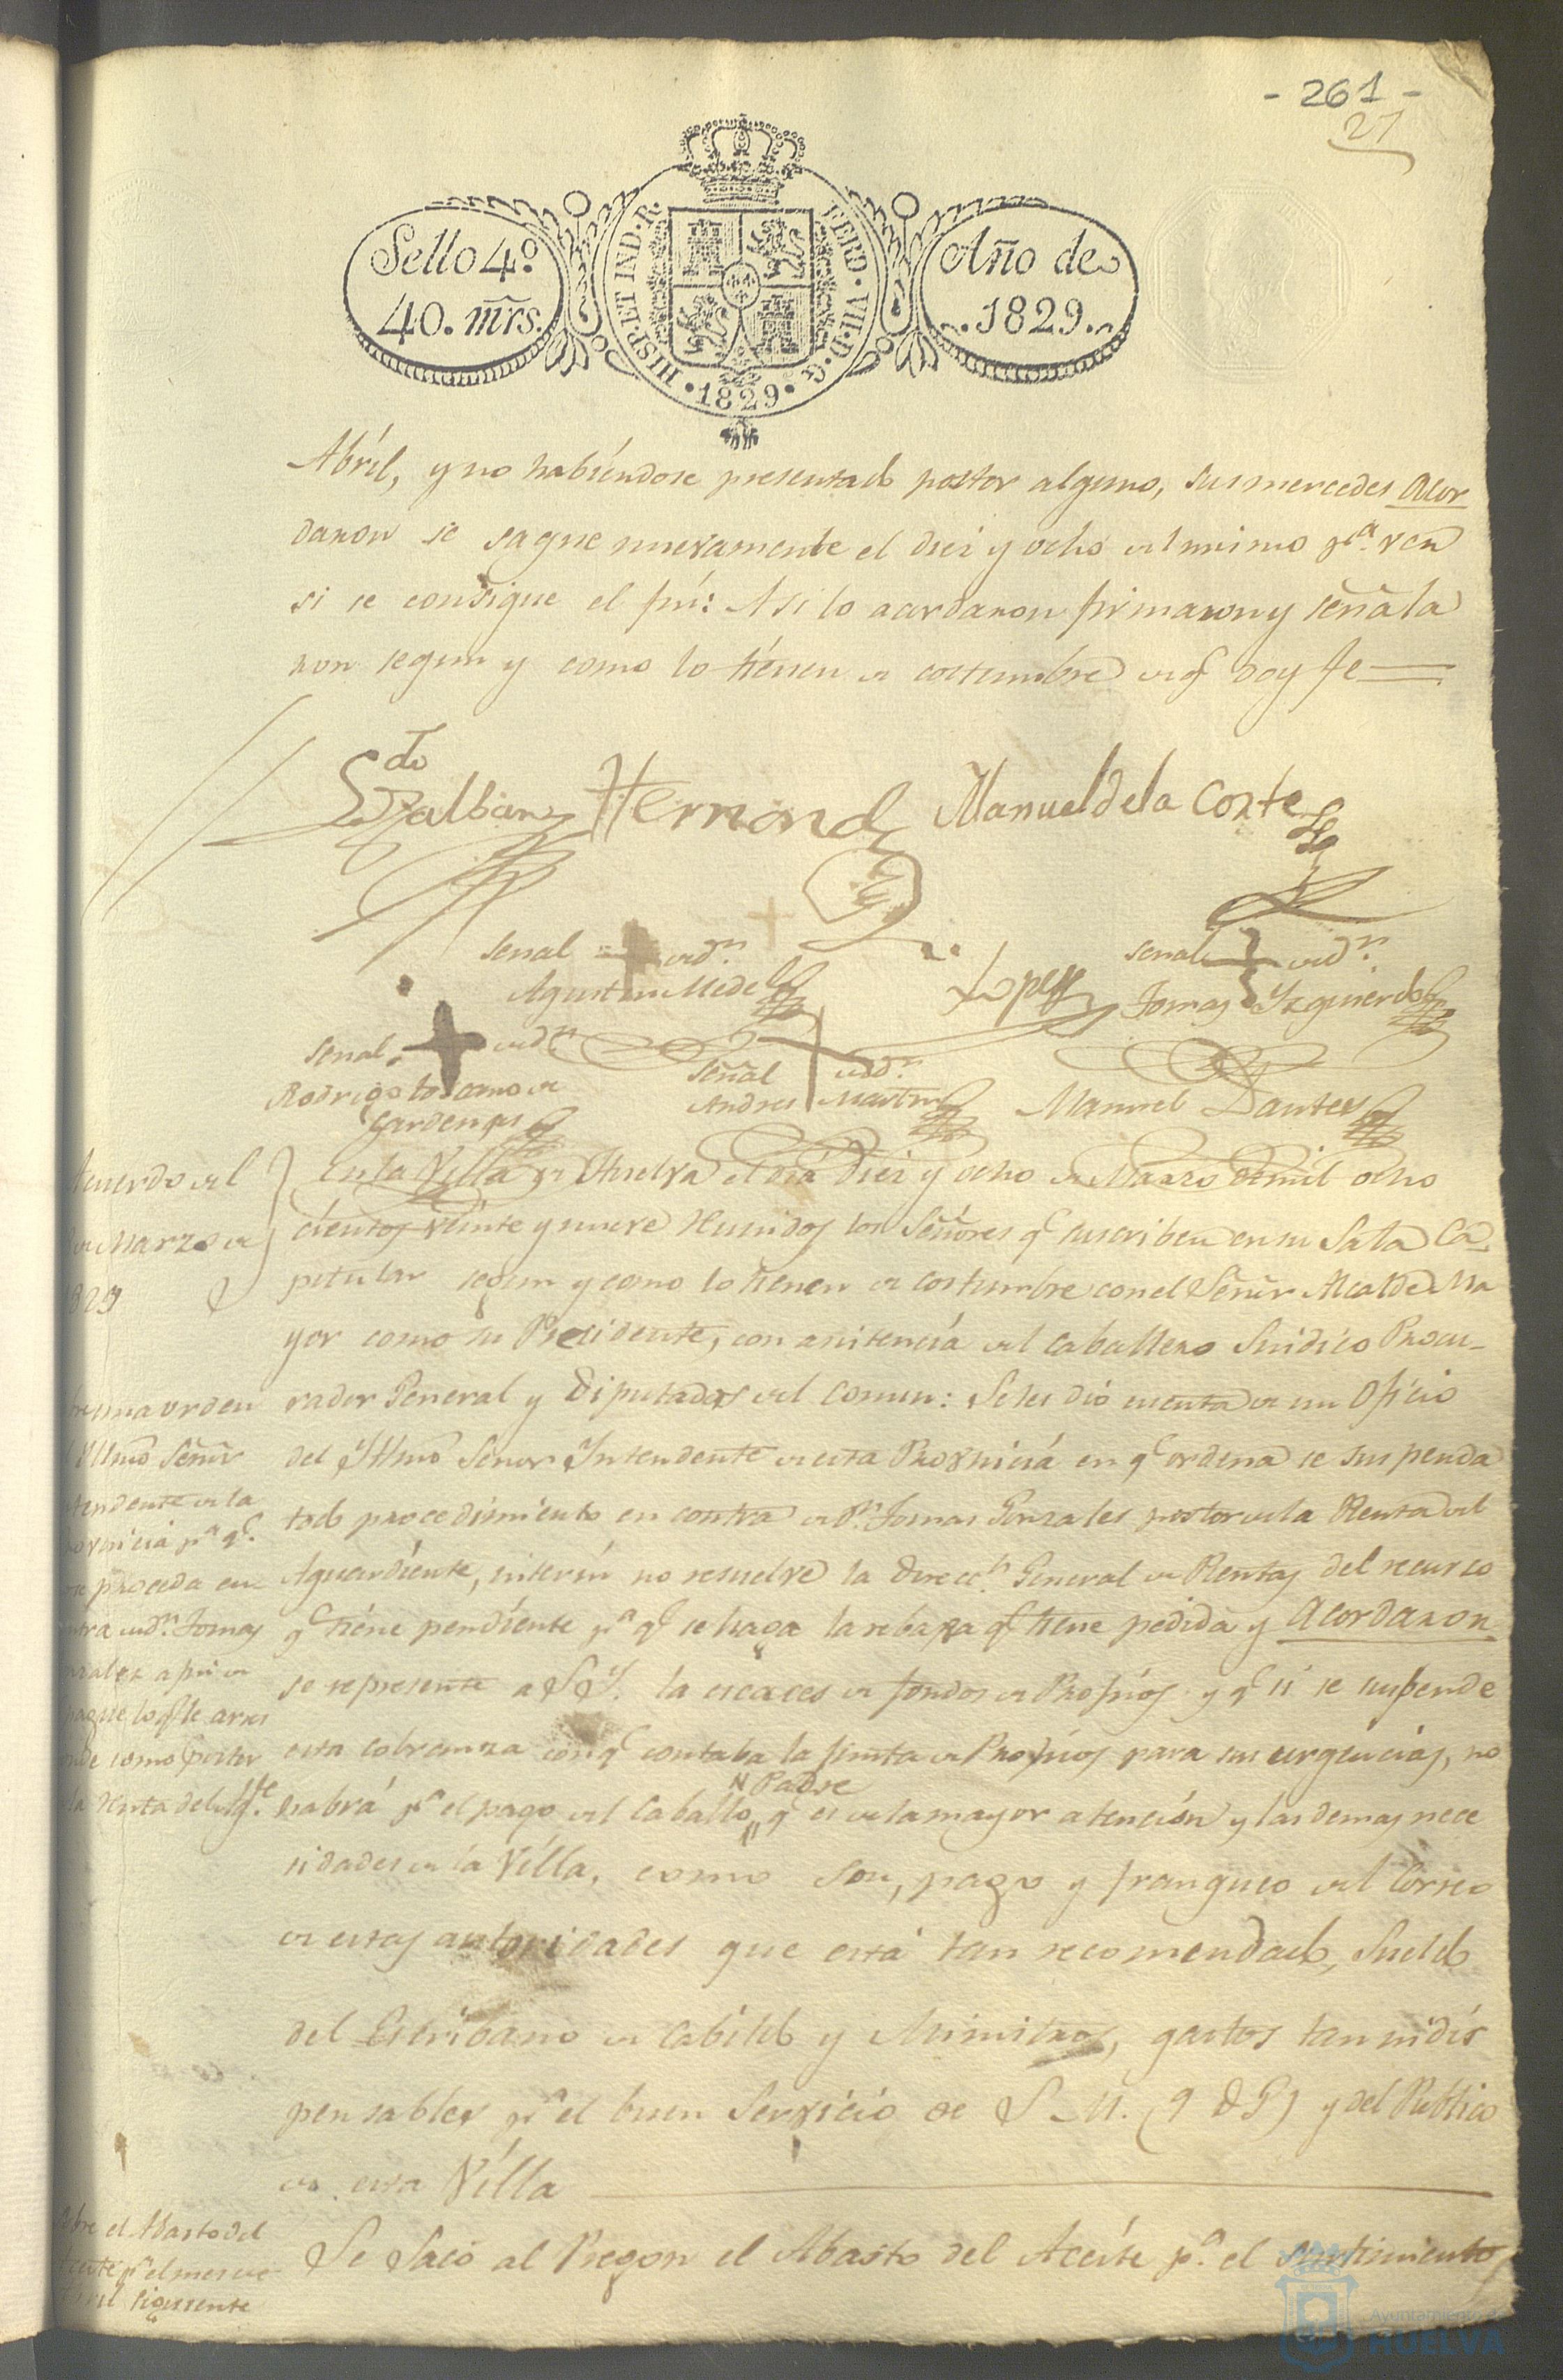 - 261 -
21
Sello 4º.
40. mrs.
HISP. ET IND. R.
FERD. VII. D. G.
1829
Año de
1829.
Abril, y no habiendose presentado postor alguno, sus mercedes Acor
daron se saque nuevamente el diez y ocho del mismo pª. ver
si se consigue el fin: Asi lo acordaron firmaron y señala
ron segun y como lo tienen de costumbre de q doy fe
Ldo
Galban
Hernand
Manuel de la Corte
Señal de dn.
Agustin Medel
Lopez
Señal de dn.
Tomas Yzquierdo
Señal de dn
Rodrigo toscano de
Cardenas
Señal de dn.
Andres Martin
Manuel Dantes
Acuerdo del
de Marzo de
829
En la Villa de Huelva el dia diez y ocho de Marzo de mil ocho
cientos veinte y nueve Reunidos los Señores q suscriben en su Sala Ca
pitular segun y como lo tienen de costumbre con el Señor Alcalde Ma
yor como su Presidente, con asistencia del Caballero Sindico Procu-
rador General y Diputados del comun: Se les dió cuenta de un Oficio
del Yllmo Señor Yntendente de esta Provincia en q ordena se suspenda
todo procedimiento en contra de Dn. Tomas Gonzales postor de la Renta del
Aguardiente, interin no resuelve la Direccn. General de Rentas del recurso
q tiene pendiente pª q se haga la rebaja q tiene pedida y Acordaron
se represente a S.Y. la escaces de fondos de Propios y q si se suspende
esta cobranza con q contaba la Junta de Propios para sus urgencias, no
habrá pª el pago del Caballo Padre q es de la mayor atención y las demas nece
sidades de la Villa, como son, pago y franqueo del Correo
de estas autoridades que está tan recomendado, Sueldo
del Escribano de Cabildo y Ministros, gastos tan indis
pensables pª el buen Servicio de S. M. (q D G) y del Publico
de esta Villa
una orden
Yllmo Señor
tendente de la
ovincia pª q.
proceda en
tra de dn. Tomas
nzalez a fin de
pague lo q le
como postor
la renta del Agte.
Se Sacó al Pregon el Abasto del Aceite pª. el surtimiento
bre el Abasto del
ceite pª el mes de
bril siguiente
Ayuntamiento de
HUELVA